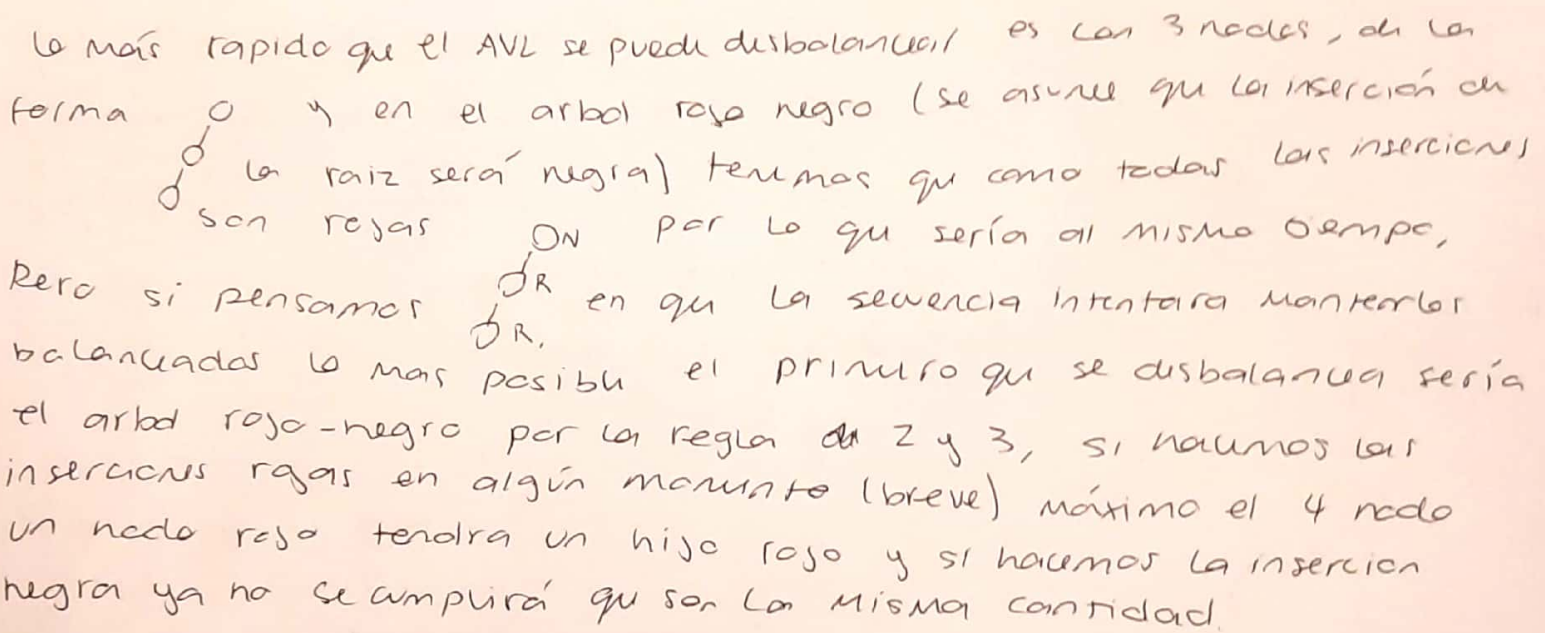 lo más rapido que el AVL se puede desbalancear es con 3 nodos, de la
forma y en el arbol rojo negro (se asume que la inserción de
la raiz será negra) tenemos que como todas las inserciones
son rojas ON por lo que sería al mismo tiempo,
Pero si pensamos OR en que la secuencia intentara mantenerlos
OR.
balanceados lo mas posible el primero que se desbalancea sería
el arbol rojo-negro por la regla de 2 y 3, si hacemos las
inserciones rojas en algún momento (breve) máximo el 4 nodo
un nodo rojo tendra un hijo rojo y si hacemos la insercion
negra ya no se cumplirá que son la misma cantidad.